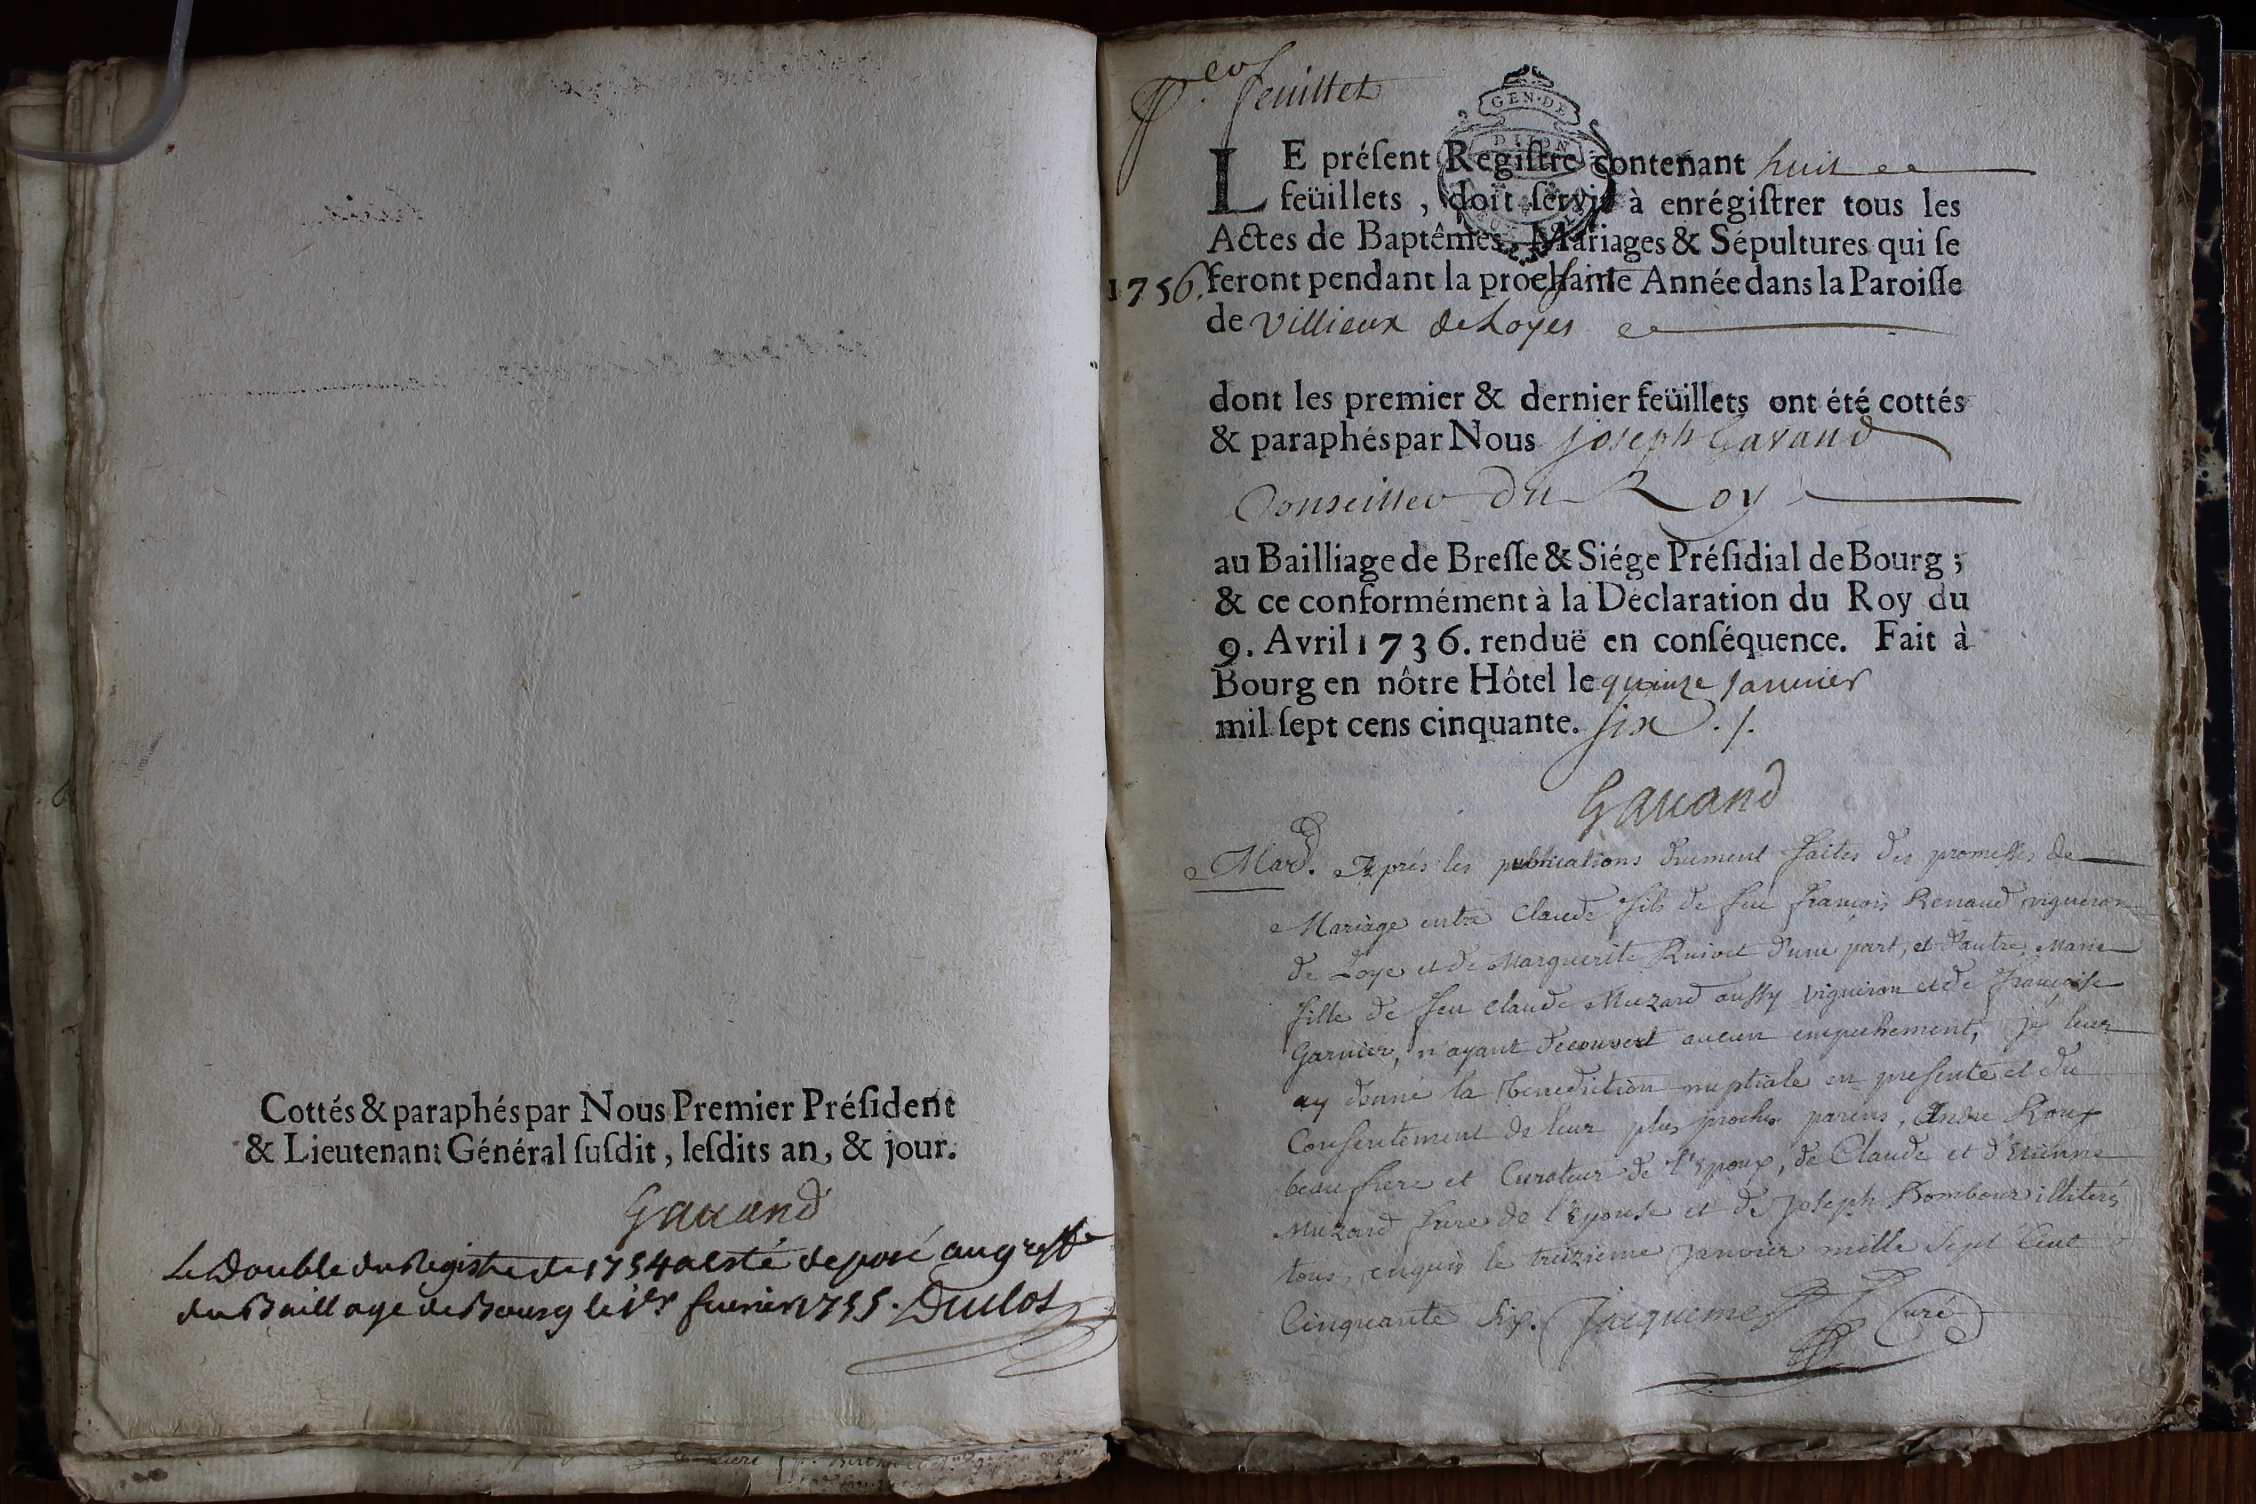 Cottés & paraphés par Nous Premier Préſident
& Lieutenant Général ſuſdit, leſdits an, & jour.
Gauand
Le Double du Registre de 1754 a esté deposé au greffe
du Baillage de Bourg le 1er feurier 1755. Duclos
feuillet
GEN·DE
DIJON
LE préſent Regiſtre contenant huit
feüillets, doit ſervir à enrégiſtrer tous les
Actes de Baptêmes, Mariages & Sépultures qui ſe
1756. feront pendant la prochaine Année dans la Paroiſſe
de Villieux de Loyes
dont les premier & dernier feüillets ont été cottés
& paraphés par Nous Joseph Gavand
Conseiller du Roy
au Bailliage de Breſſe & Siége Préſidial de Bourg ;
& ce conformément à la Déclaration du Roy du
9. Avril 1736. renduë en conſéquence. Fait à
Bourg en nôtre Hôtel le quinze janvier
mil ſept cens cinquante. six ./.
Gauand
Mard. Aprés les publications duement faites des promesses de
Mariage entre Claude fils de feu françois Renaud vigneron
de Loye et de Marguerite d'une part, et d'autre Marie
fille de feu Claude Muzard aussy vigneron et de françoise
Garnier, n'ayant decouvert aucun empechement, je leur
ay donné la benediction nuptiale en presence et du
Consentement de leur plus proches parens, André Roux
beau frere et Curateur de l'Epoux, de Claude et d'Etienne
Muzard frere de l'Epouse et de Joseph Bombour illiterés
tous, enquis le treizieme janvier mille Sept Cent
Cinquante Six. Jacquemet Curé